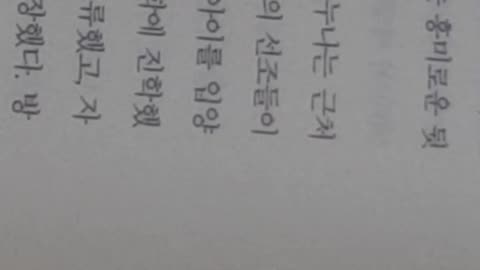 흥미로운 뒷
누나는 근처
의 선조들이
아이를 입양
에 진화했
류했고, 자
장했다. 방